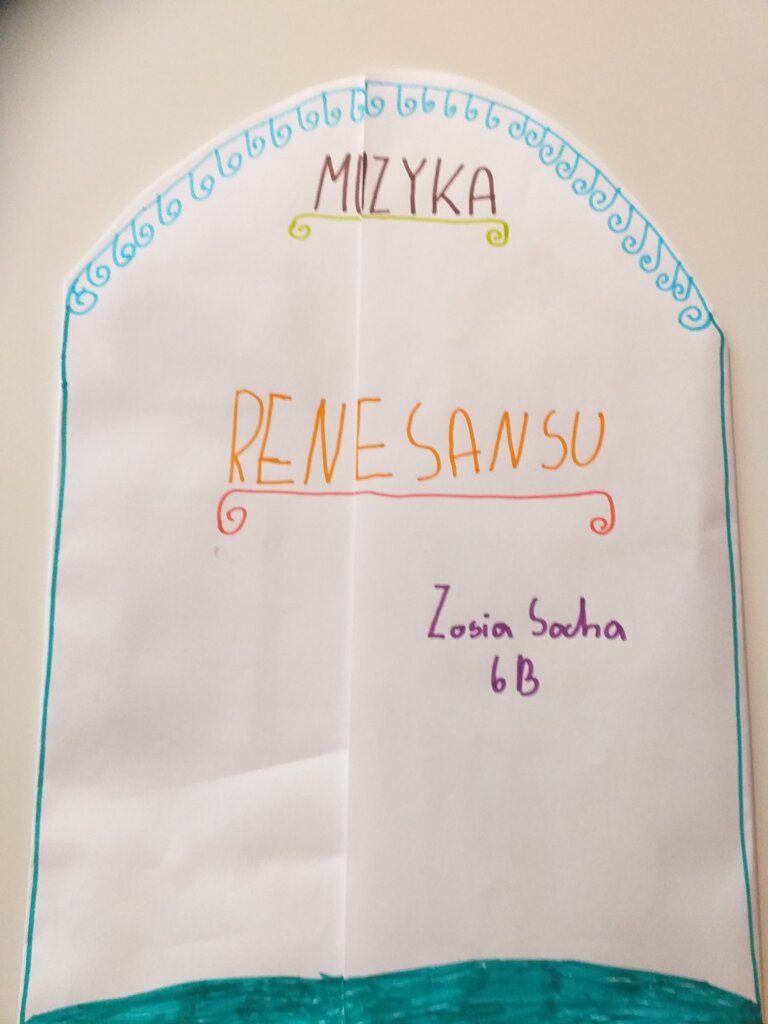 MUZYKA
RENESANSU
Zosia Socha
6B